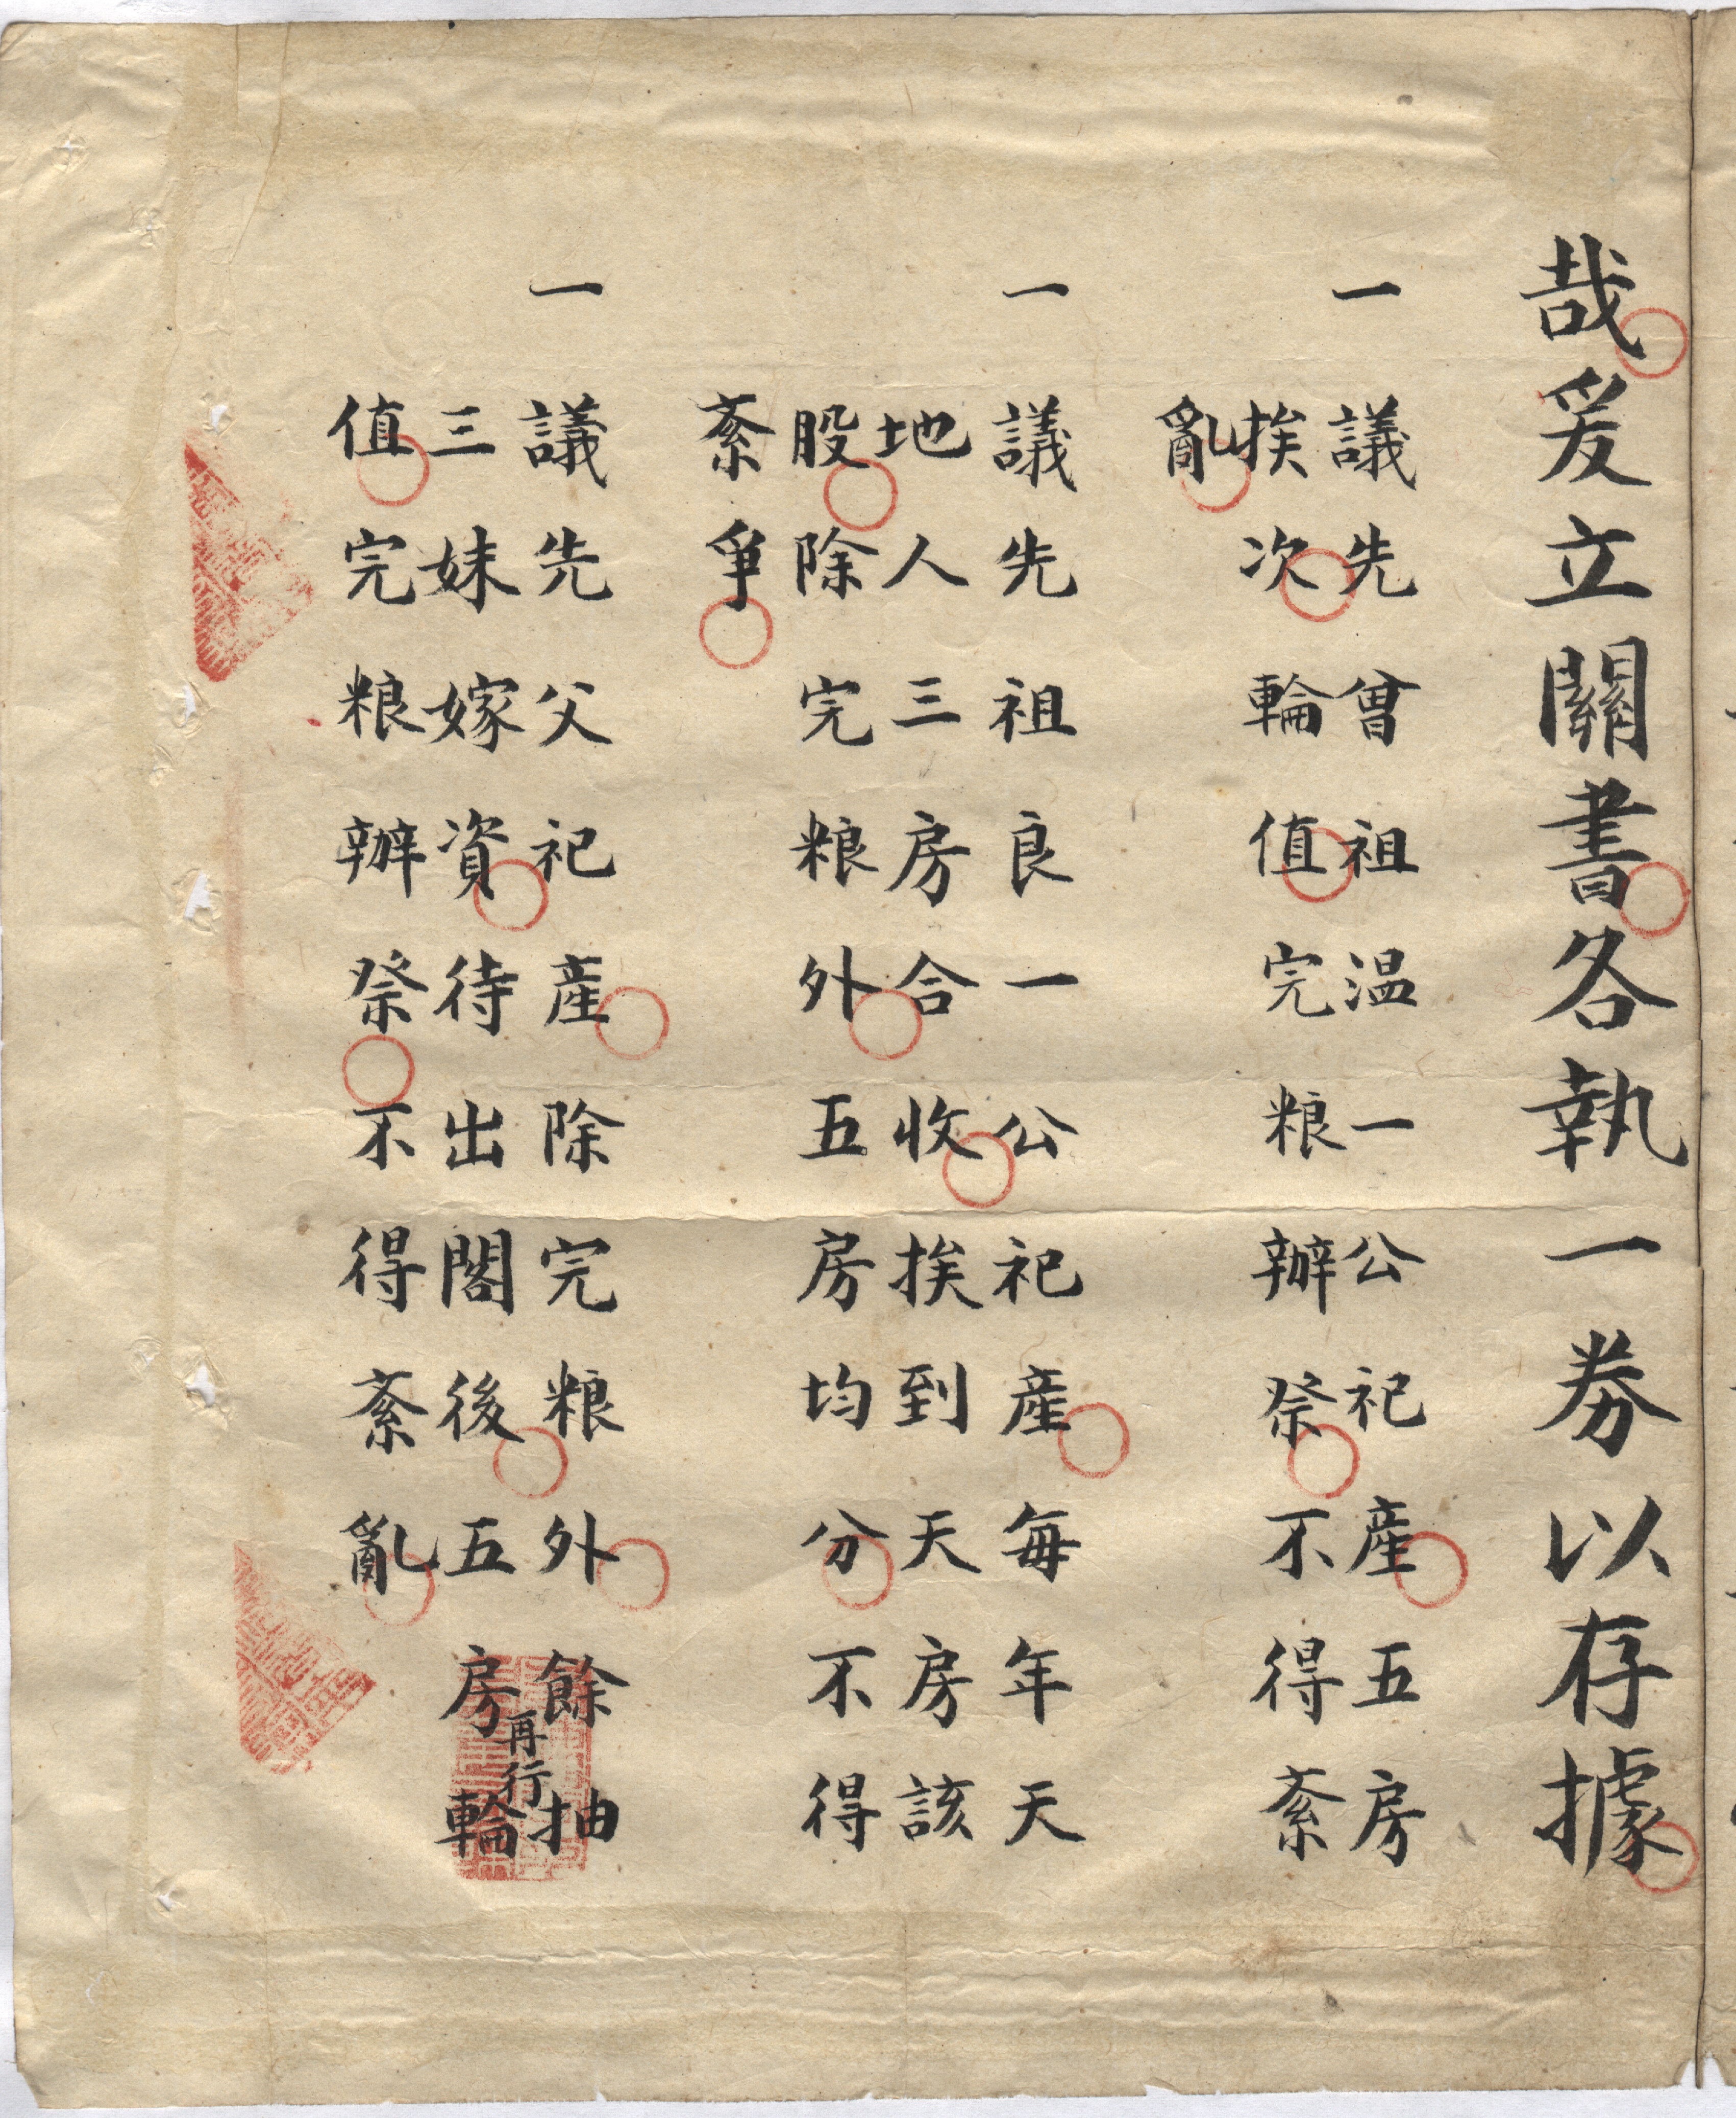 哉爰立關書各執一券以存據
一 議先曾祖温一公祀産五房
挨次輪值完粮辦祭不得紊
亂
一 議先祖良一公祀産每年天
地人三房合收挨到天房該
股除完粮外五房均分不得
紊爭
一 議先父祀産除完粮外餘抽
三妹嫁資待出閣後五房再行輪
值完粮辦祭不得紊亂